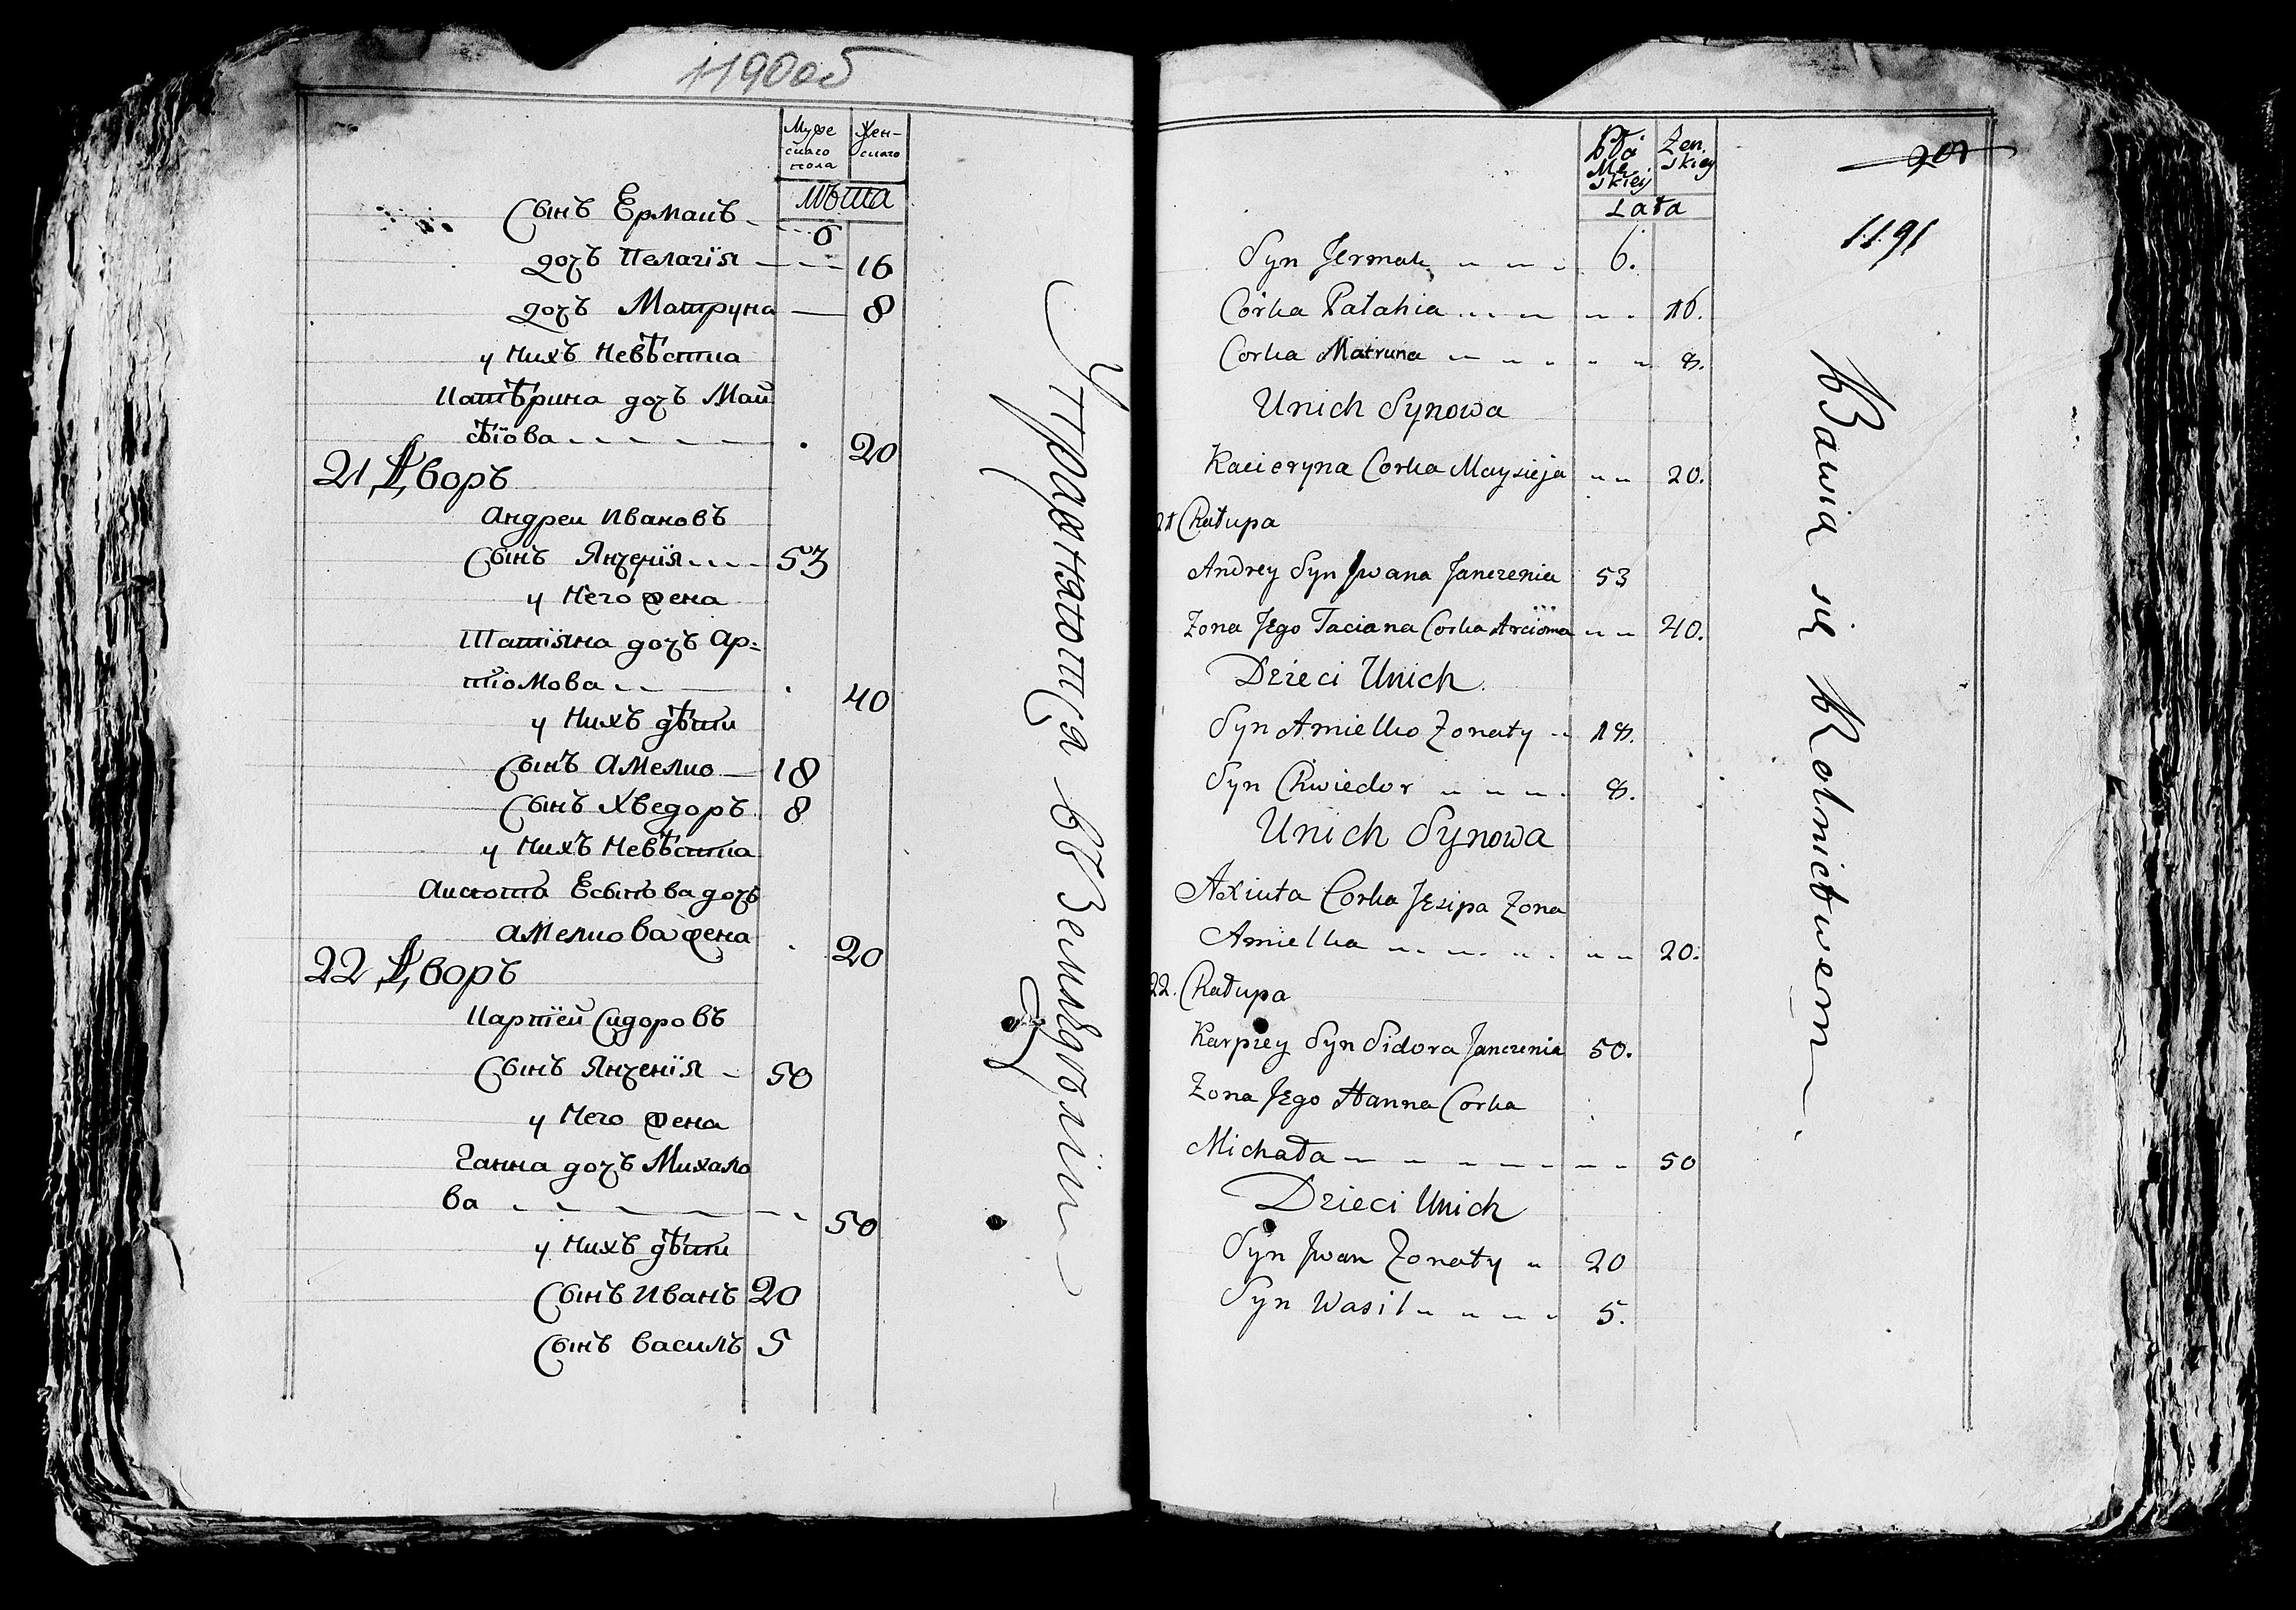 1190об
Мужескаго пола
Женскаго
Лѣта
Сынъ Ермакъ 6
дочъ Пелагія 16
дочъ Матруна 8
у нихъ невѣстка
Катѣрина дочъ Май
сѣіова 20
21 Дворъ
Андреи Ивановъ
Сынъ Янченія 53
у него жена
Татіяна дочъ Ар=
тіомова 40
у нихъ дѣти
Сынъ Амелко 18
Сынъ Хведоръ 8
у нихъ невѣстка
Аксюта Есыпова дочъ
Амелкова жена 20
22 Дворъ
Карпѣй Сидоровъ
Сынъ Янченія 50
у него жена
Ганна дочъ Михало
ва 50
у нихъ дѣти
Сынъ Иванъ 20
Сынъ Василъ 5
Упражняются въ Земледѣліи
201
1191
Płci Męskiey
Zenskiey
Lata
Syn Jermak 6.
Corka Pałahia 16.
Corka Matruna 8.
Unich Synowa
Kacieryna Corka Maysieja 20.
21 Chałupa
Andrey Syn Jwana Janczenia 53
Zona Jego Taciana Corka Arcioma 40.
Dzieci Unich
Syn Amielko Zonaty 18.
Syn Chwiedor 8.
Unich Synowa
Axiuta Corka Jesipa Zona
Amielka 20.
22. Chałupa
Karpiey Syn Sidora Janczenia 50.
Zona Jego Hanna Corka
Michała 50
Dzieci Unich
Syn Jwan Zonaty 20
Syn Wasil 5.
Bawią się Rolnictwem